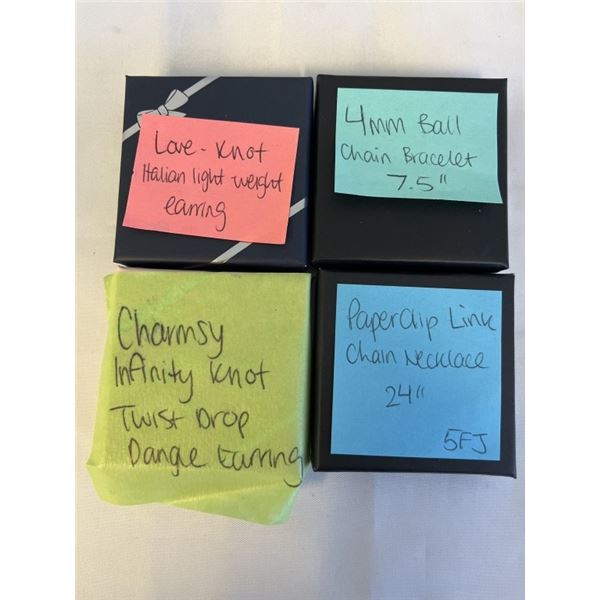 Love-Knot
Italian light weight
earring
4mm Ball
Chain Bracelet
7.5"
Charmsy
Infinity Knot
Twist Drop
Dangle Earring
Paperclip Link
Chain Necklace
24"
5FJ